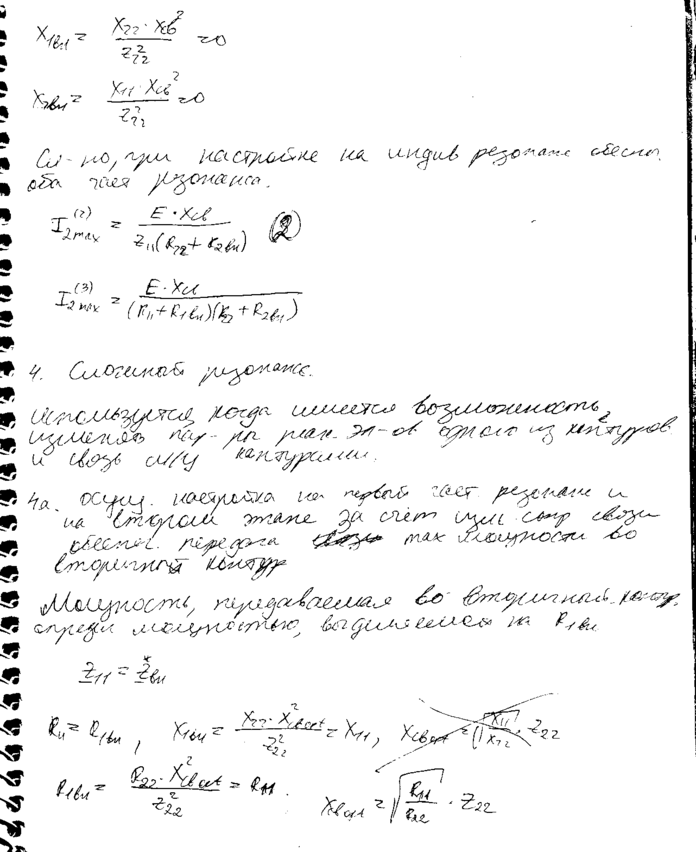 X₁вн = X₂₂ · Xсв² / Z₂₂² = 0
X₂вн = X₁₁ · Xсв² / Z₂₂² = 0
Сл-но, при настройке на индив резонанс обеспеч.
оба част резонанса.
I₂max⁽²⁾ = E · Xсв / Z₁₁(R₂₂ + R₂вн) ②
I₂max⁽³⁾ = E · Xсв / (R₁₁ + R₁вн)(R₂₂ + R₂вн)
4. Сложный резонанс.
используется, когда имеется возможность
изменять пар-ры реак. эл-ов одного из контуров
и связь м/у контурами.
4а. осущ. настройка на первый част резонанс и
на втором этапе за счёт изм. сопр связи
обеспеч. передача max мощности во
вторичный контур
Мощность, передаваемая во вторичный контур.
опред мощностью, выделяемой на R₁вн
Z₁₁ = Z*вн
R₁₁ = R₁вн, X₁вн = X₂₂ · X²св opt / Z₂₂² = X₁₁, Xсв opt = √(X₁₁ / X₂₂) · Z₂₂
R₁вн = R₂₂ · X²св opt / Z₂₂² = R₁₁. Xсв opt = √(R₁₁ / R₂₂) · Z₂₂